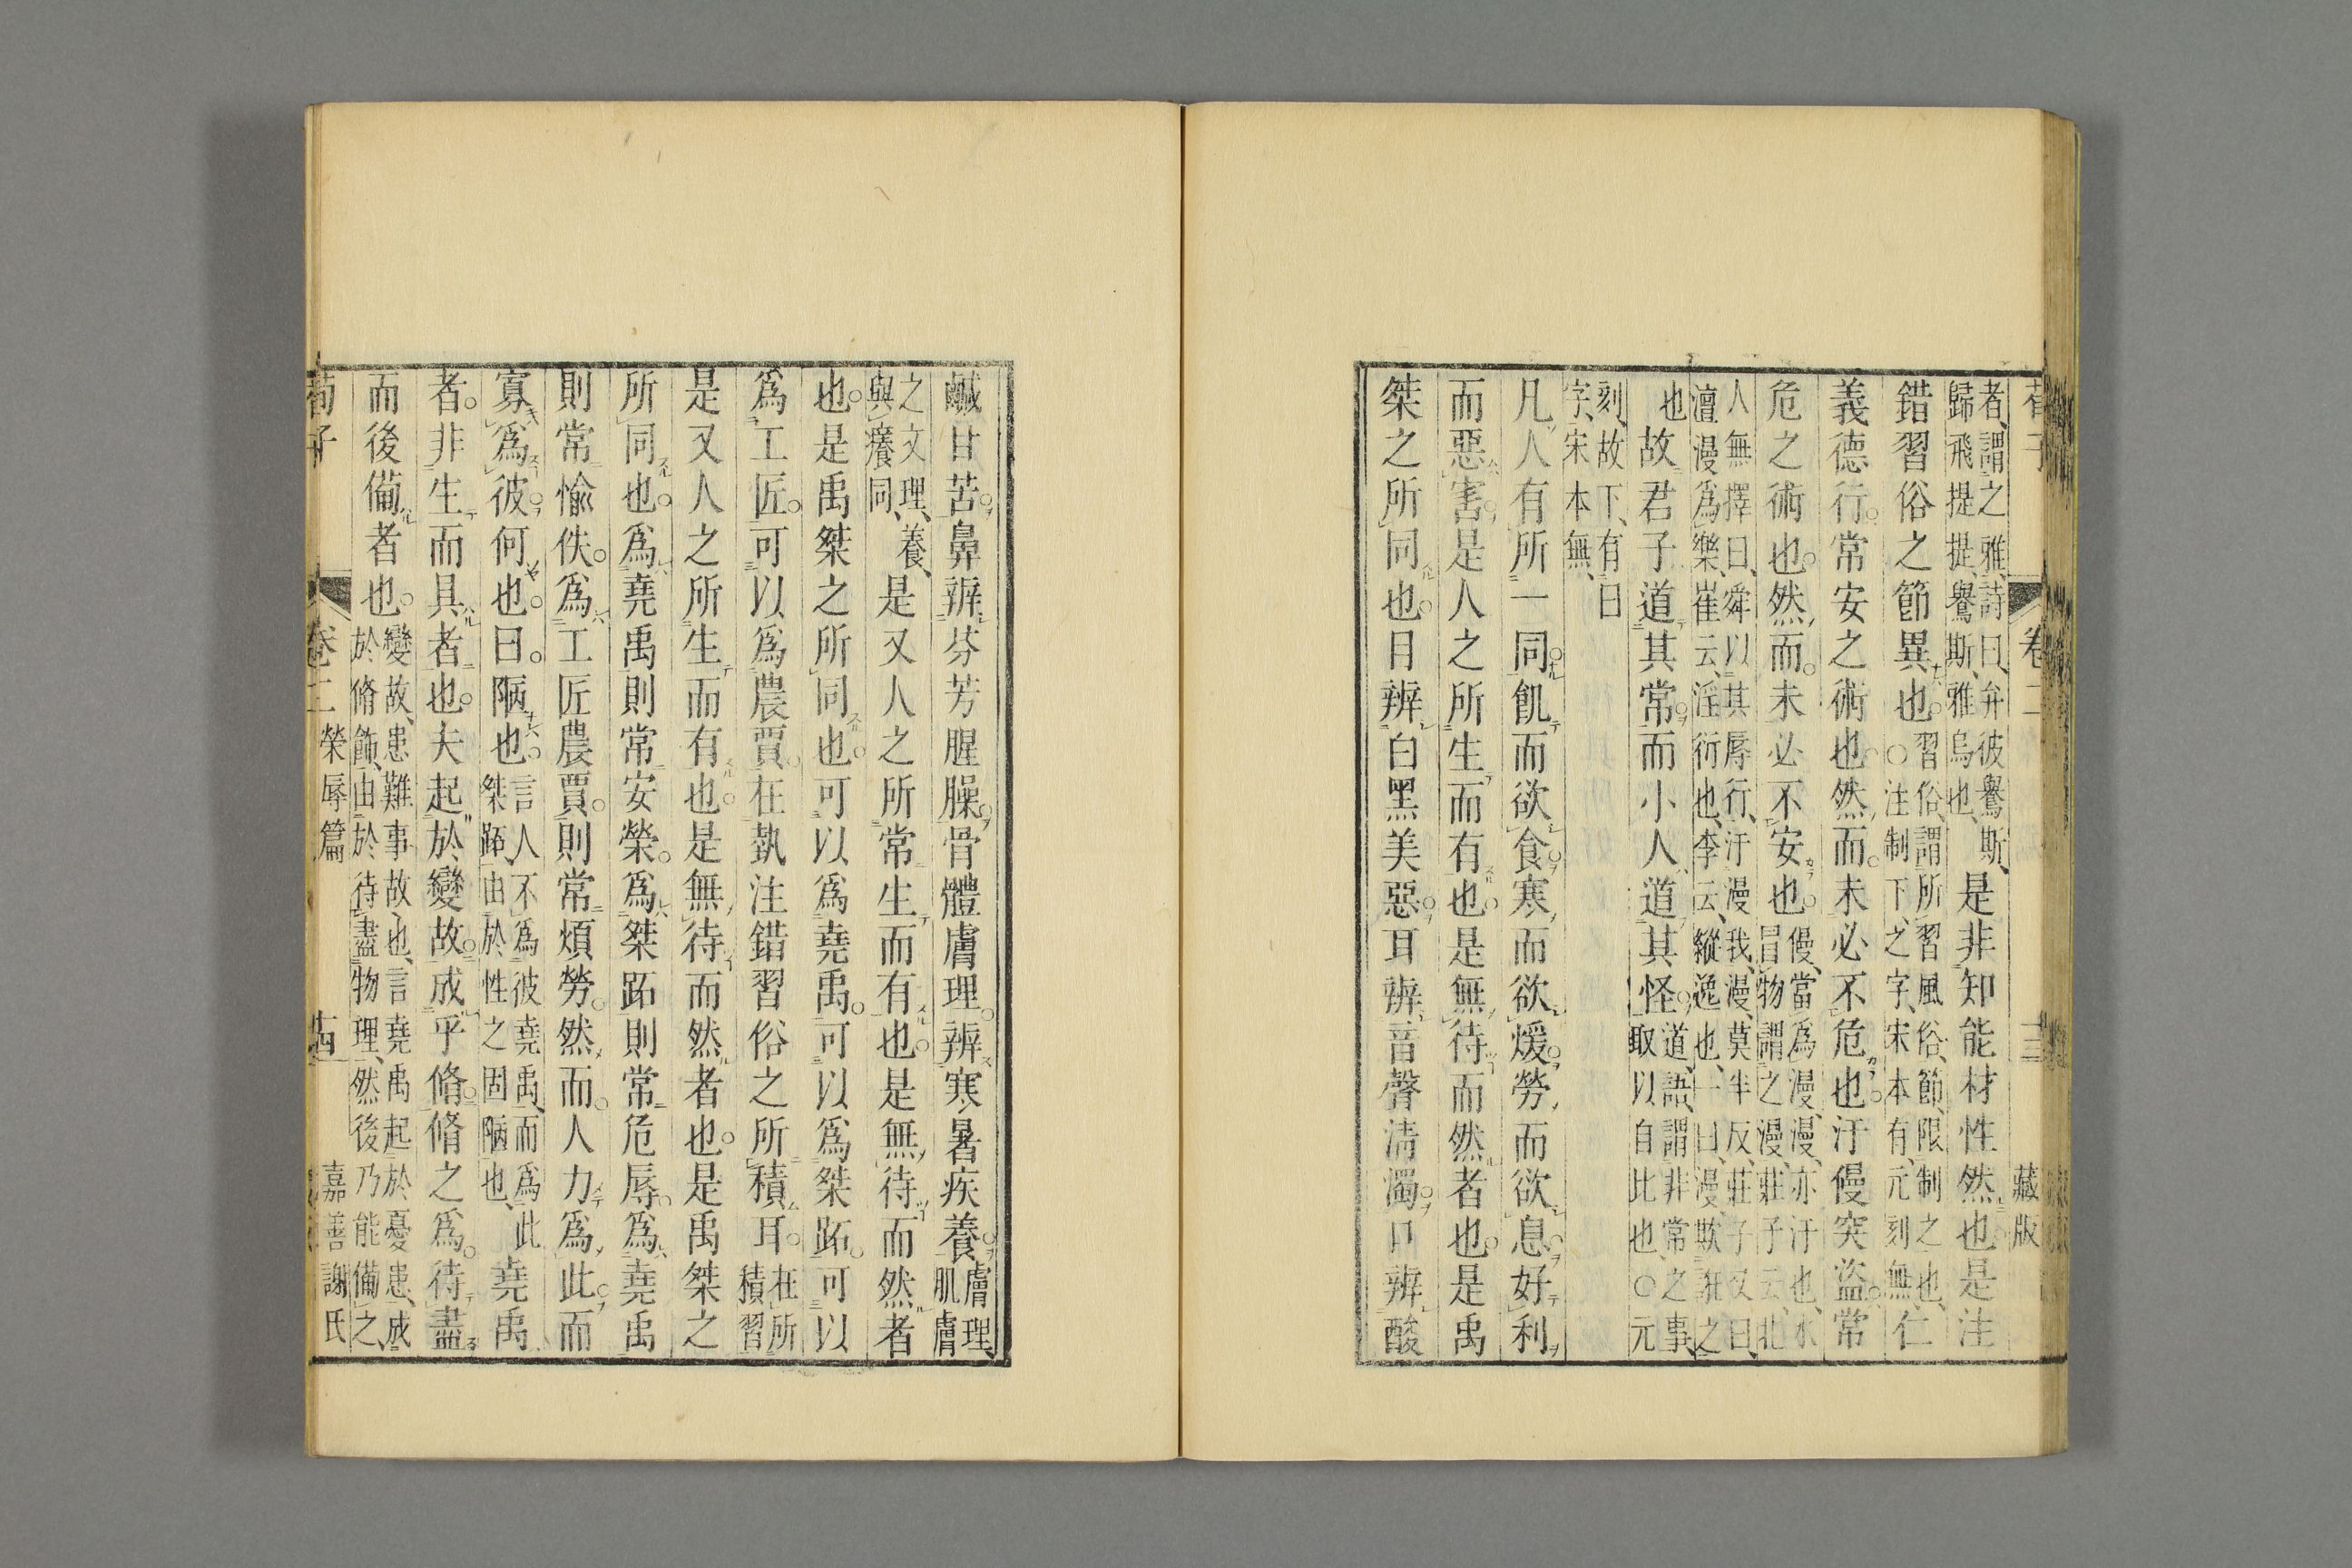 荀子　卷二　三　藏版
者、謂之雅、詩曰、弁彼鸒斯、
歸飛提提、鸒斯、雅烏也、
是非知能材性然也是注
錯習俗之節異也。
習俗、謂所習風俗、節、限制之也、
○注制下、之字、宋本有、元刻無、
仁
義德行。常安之術也。然而。未必不危也。汙僈突盜。常
危之術也。然而。未必不安也。
僈、當爲漫、漫、亦汙也、水
冒物謂之漫、莊子云、北
人無擇曰、舜以其辱行、汙漫我、漫、莫半反、莊子又曰、
澶漫爲樂、崔云、淫衍也、李云、縱逸也、一曰、漫、欺誑之
也
故君子道其常。而小人道其怪。
道、語、謂非常之事、
取以自此也、○元
刻、故下、有曰
字、宋本無、
凡人有所一同。飢而欲食。寒而欲煖。勞而欲息。好利
而惡害。是人之所生而有也。是無待而然者也。是禹
桀之所同也。目辨白黑美惡。耳辨音聲淸濁。口辨酸
鹹甘苦。鼻辨芬芳腥臊。骨體膚理。辨寒暑疾養。
膚理、肌膚
之文理、養、
與癢同、
是又人之所常生而有也。是無待而然者
也。是禹桀之所同也。可以爲堯禹。可以爲桀跖。可以
爲工匠。可以爲農賈。在埶注錯習俗之所積耳。
在所
積習
是又人之所生而有也。是無待而然者也。是禹桀之
所同也。爲堯禹則常安榮。爲桀跖則常危辱。爲堯禹
則常愉佚。爲工匠農賈。則常煩勞。然而。人力爲此。而
寡爲彼。何也。曰。陋也。
言人不爲彼堯禹、而爲此
桀跖、由於性之固陋也、
堯禹
者。非生而具者也。夫起於變故。成乎脩。脩之爲。待盡
而後備者也。
變故、患難事故也、言堯禹起於憂患、成
於脩飾、由於待盡物理、然後乃能備之
荀子　卷二　榮辱篇　十四　嘉善謝氏